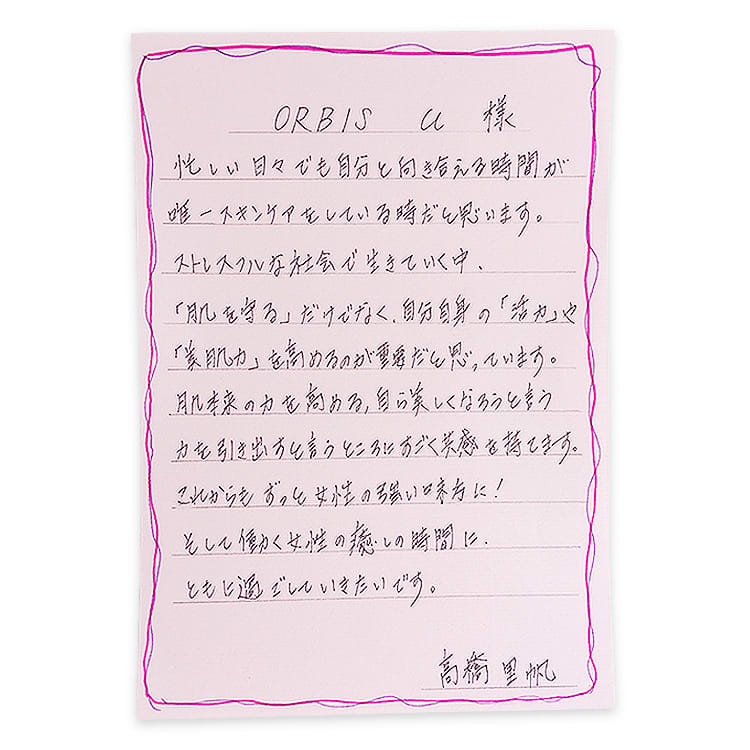 ORBIS u 様
忙しい日々でも自分と向き合える時間が
唯一スキンケアをしている時だと思います。
ストレスフルな社会で生きていく中、
「肌を守る」だけでなく、自分自身の「活力」や
「美肌力」を高めるのが重要だと思っています。
肌本来の力を高める、自ら美しくなろうと言う
力を引き出すと言うところにすごく共感を持てます。
これからもずっと女性の強い味方に!
そして働く女性の癒しの時間に、
ともに過ごしていきたいです。
高橋里帆